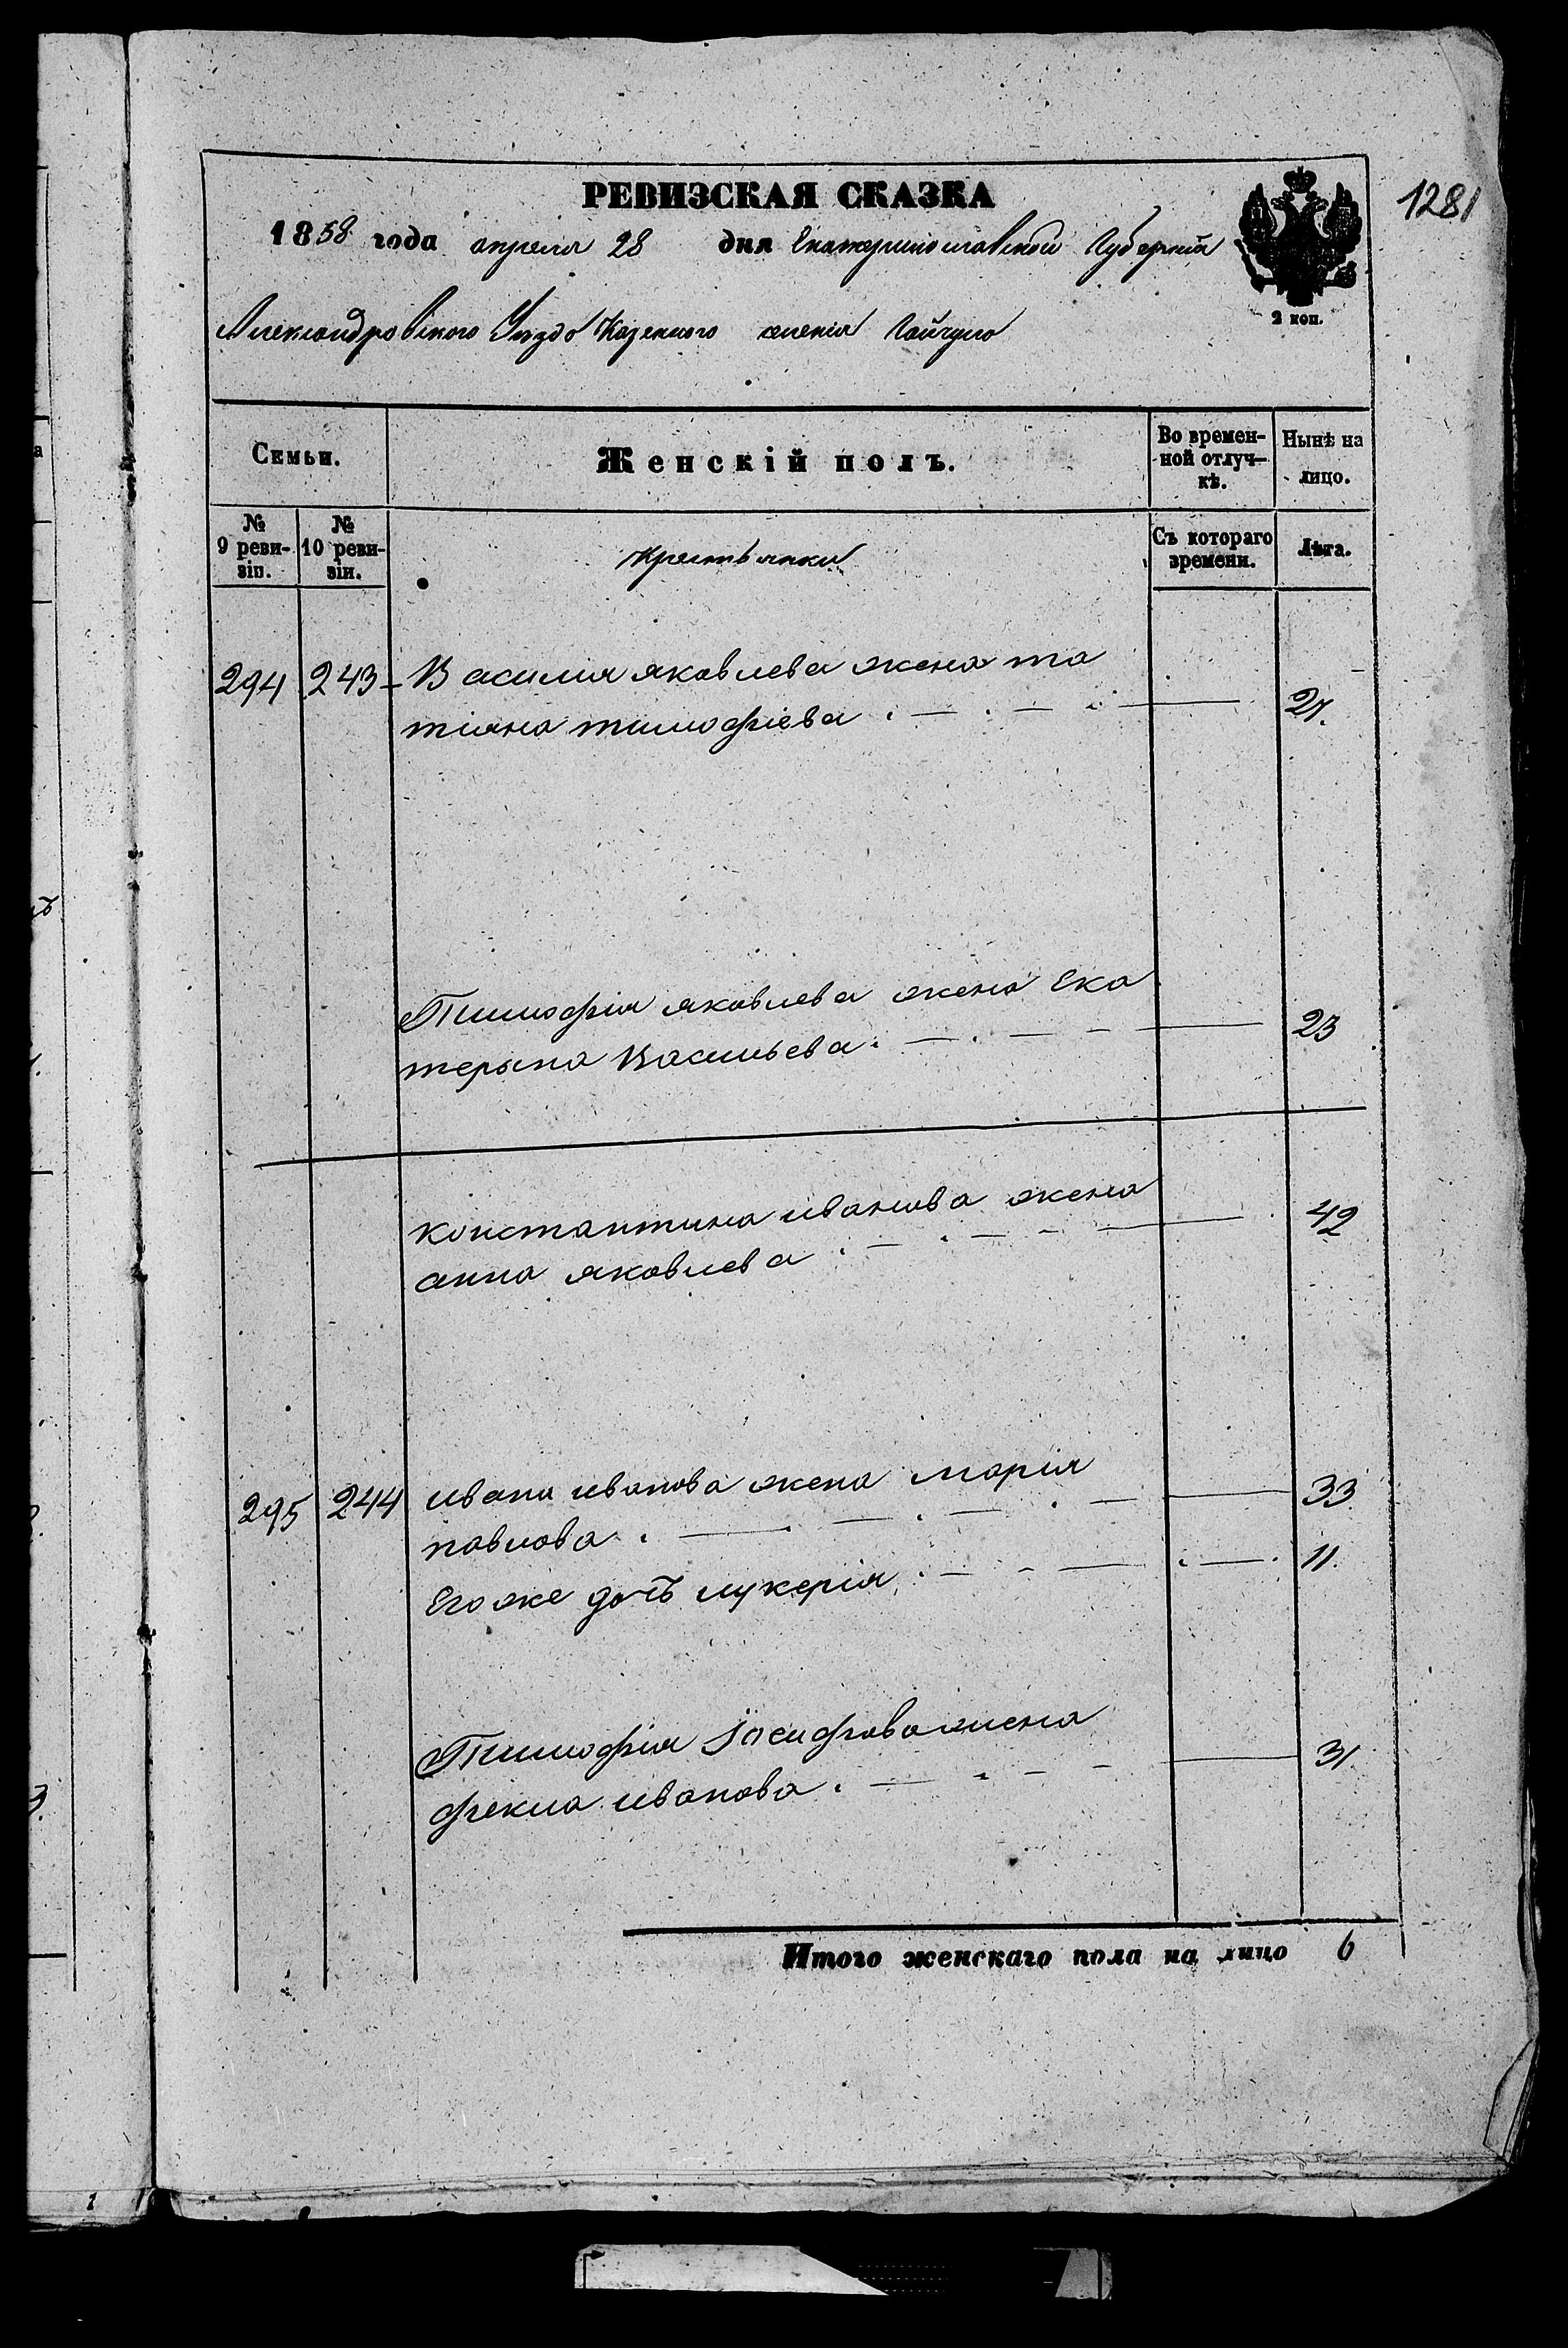 1281
РЕВИЗСКАЯ СКАЗКА
1858 года апреля 28 дня Екатеринославской Губерніи
Александровского Уезда Казенного селенія Гайчула
2 коп.
Семьи.
Женскій полъ.
Во времен-
ной отлуч-
кѣ.
Нынѣ на
лицо.
№
9 реви-
зіи.
№
10 реви-
зіи.
крестьянки
Съ котораго
времени.
Лѣта.
294 243 Василия яковлева жена та
тіяна тимофіева 27.
Тимофія яковлева жена Ека
терына Васильева 23
константина иванова жена 42
анна яковлева
295 244 ивана иванова жена марія 33
павлова
Его же дочъ лукерія 11.
Тимофія Іосифова жена 31
фекла иванова
Итого женскаго пола на лицо 6